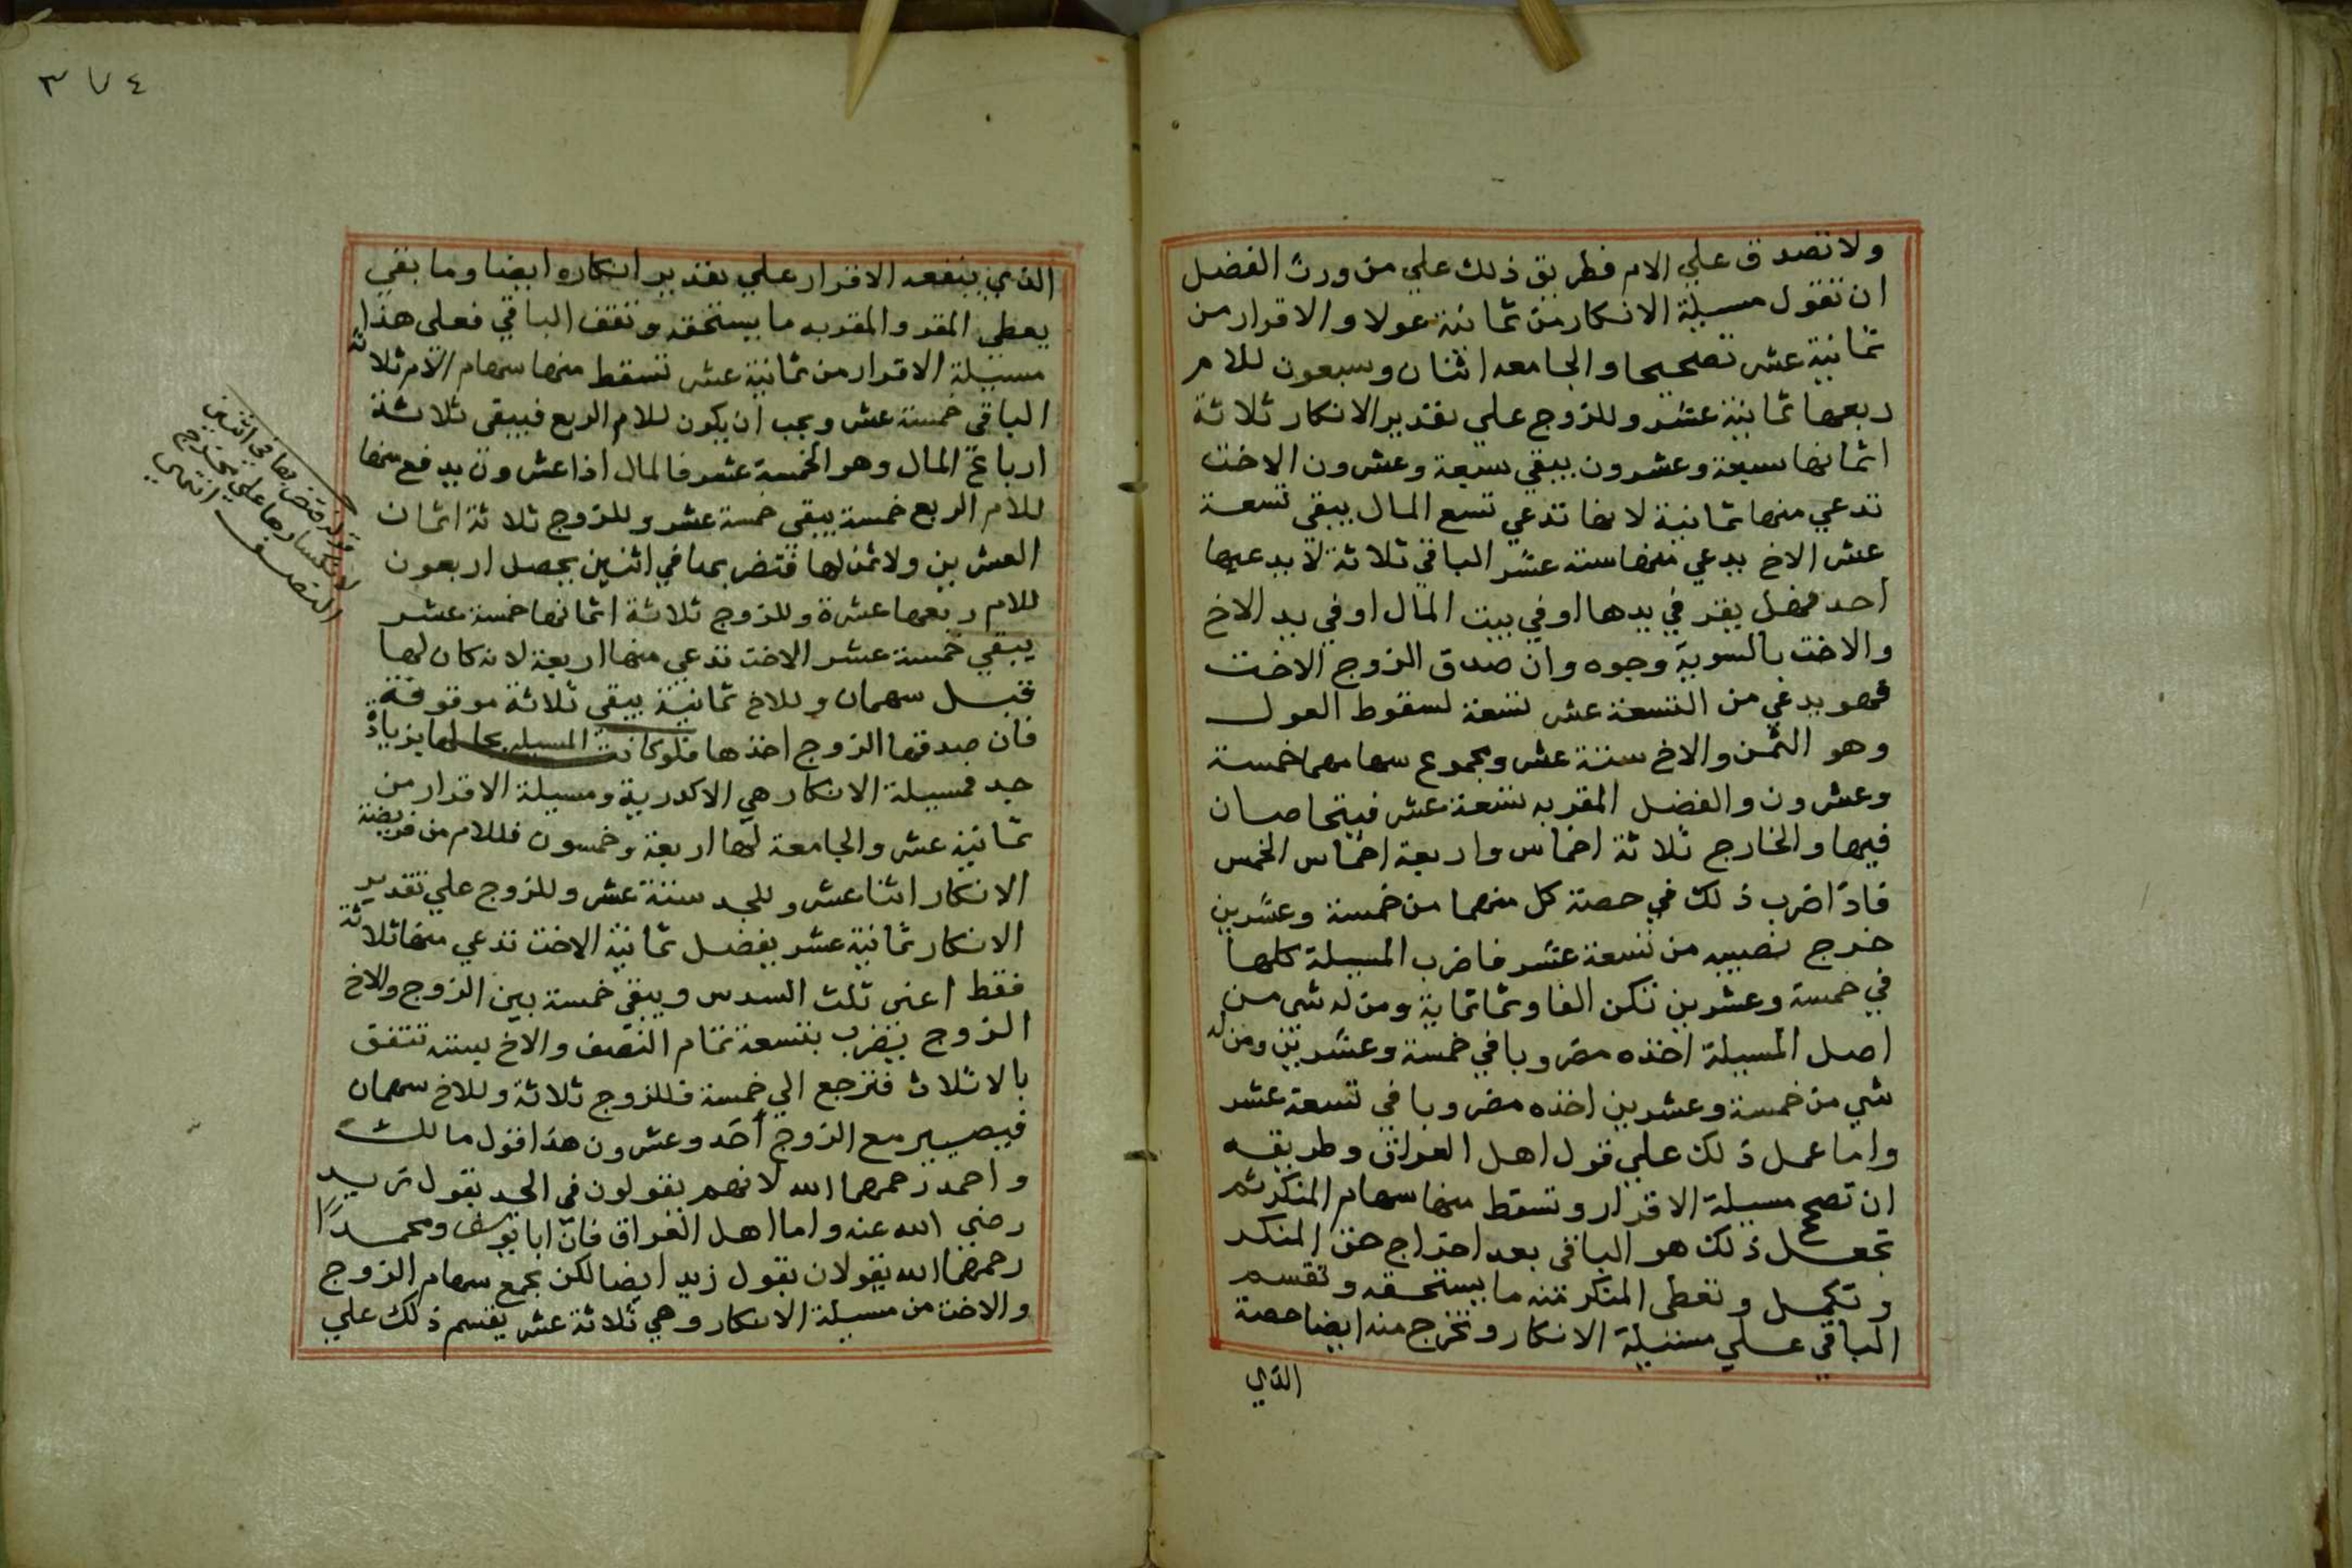 ولا تصدق علي الام فطريق ذلك علي من ورث الفضل
ان تقول مسيلة الانكار من ثمانية عولا والاقرار من
ثمانية عشر تصحيحا والجامعه اثنان وسبعون للام
ربعها ثمانية عشر وللزوج علي تقدير الانكار ثلاثة
اثمانها سبعة وعشرون يبقي سبعة وعشرون الاخت
تدعي منها ثمانية لانها تدعي تسع المال يبقي تسعة
عشر الاخ يدعي منها ستة عشر الباقي ثلاثة لا يدعيها
احد فهل يقر في يدها او في بيت المال او في يد الاخ
والاخت بالسوية وجوه وان صدق الزوج الاخت
فهو يدعي من التسعة عشر تسعة لسقوط العول
وهو الثمن والاخ ستة عشر ومجموع سهامهما خمسة
وعشرون والفضل المقر به تسعة عشر فيتحاصان
فيها والخارج ثلاثة اخماس واربعة اخماس الخمس
فاذا ضرب ذلك في حصة كل منهما من خمسة وعشرين
خرج نصيبه من تسعة عشر فاضرب المسيلة كلها
في خمسة وعشرين تكن الفا وثماتماية ومن له شي من
اصل المسيلة اخذه مضروبا في خمسة وعشرين ومن له
شي من خمسة وعشرين اخذه مضروبا في تسعة عشر
واما عمل ذلك علي قول اهل العراق وطريقه
ان تصحح مسيلة الاقرار وتسقط منها سهام المنكر ثم
تجعل ذلك هو الباقي بعد اخراج حق المنكر
وتكمل وتعطى المنكر منه ما يستحقه وتقسم
الباقي علي مسيلة الانكار وتخرج منه ايضا حصة
الذي
٣٧٤
الذي ينفعه الاقرار علي تقدير انكاره ايضا وما بقي
يعطي المقر والمقر به ما يستحقه وتقف الباقي فعلى هذا
مسيلة الاقرار من ثمانية عشر تسقط منها سهام الام ثلاثة
الباقي خمسة عشر ويجب ان يكون للام الربع فيبقى ثلاثة
ارباع المال وهو الخمسة عشر فالمال اذا عشرون يدفع منها
للام الربع خمسة يبقي خمسة عشر وللزوج ثلاثة اثمان
العشرين ولا ثمن لها فتضربها في اثنين يحصل اربعون
للام ربعها عشرة وللزوج ثلاثة اثمانها خمسة عشر
يبقي خمسة عشر الاخت تدعي منها اربعة لانه كان لها
قبل سهمان وللاخ ثمانية يبقي ثلاثة موقوفة
فان صدقها الزوج اخذها فلو كانت المسيله بحالها بزيادة
جد فمسيلة الانكار هي الاكدرية ومسيلة الاقرار من
ثمانية عشر والجامعة لها اربعة وخمسون فللام من فريضة
الانكار اثنا عشر وللجد ستة عشر وللزوج علي تقدير
الانكار ثمانية عشر يفضل ثمانية الاخت تدعي منها ثلاثة
فقط اعنى ثلث السدس ويبقي خمسة بين الزوج والاخ
الزوج يضرب بتسعة تمام النصف والاخ بسته تتفق
بالاثلاث فترجع الي خمسة فللزوج ثلاثة وللاخ سهمان
فيصير مع الزوج احد وعشرون هذا قول مالك
واحمد رحمهما الله لانهم يقولون في الجد بقول زيد
رضي الله عنه واما اهل العراق فان ابا يوسف ومحمدا
رحمهما الله يقولان بقول زيد ايضا لكن بجمع سهام الزوج
والاخت من مسيلة الانكار وهي ثلاثة عشر يقسم ذلك علي
قوله فتضربها في اثنين
لانكسارها علي مخرج
النصف انتهى